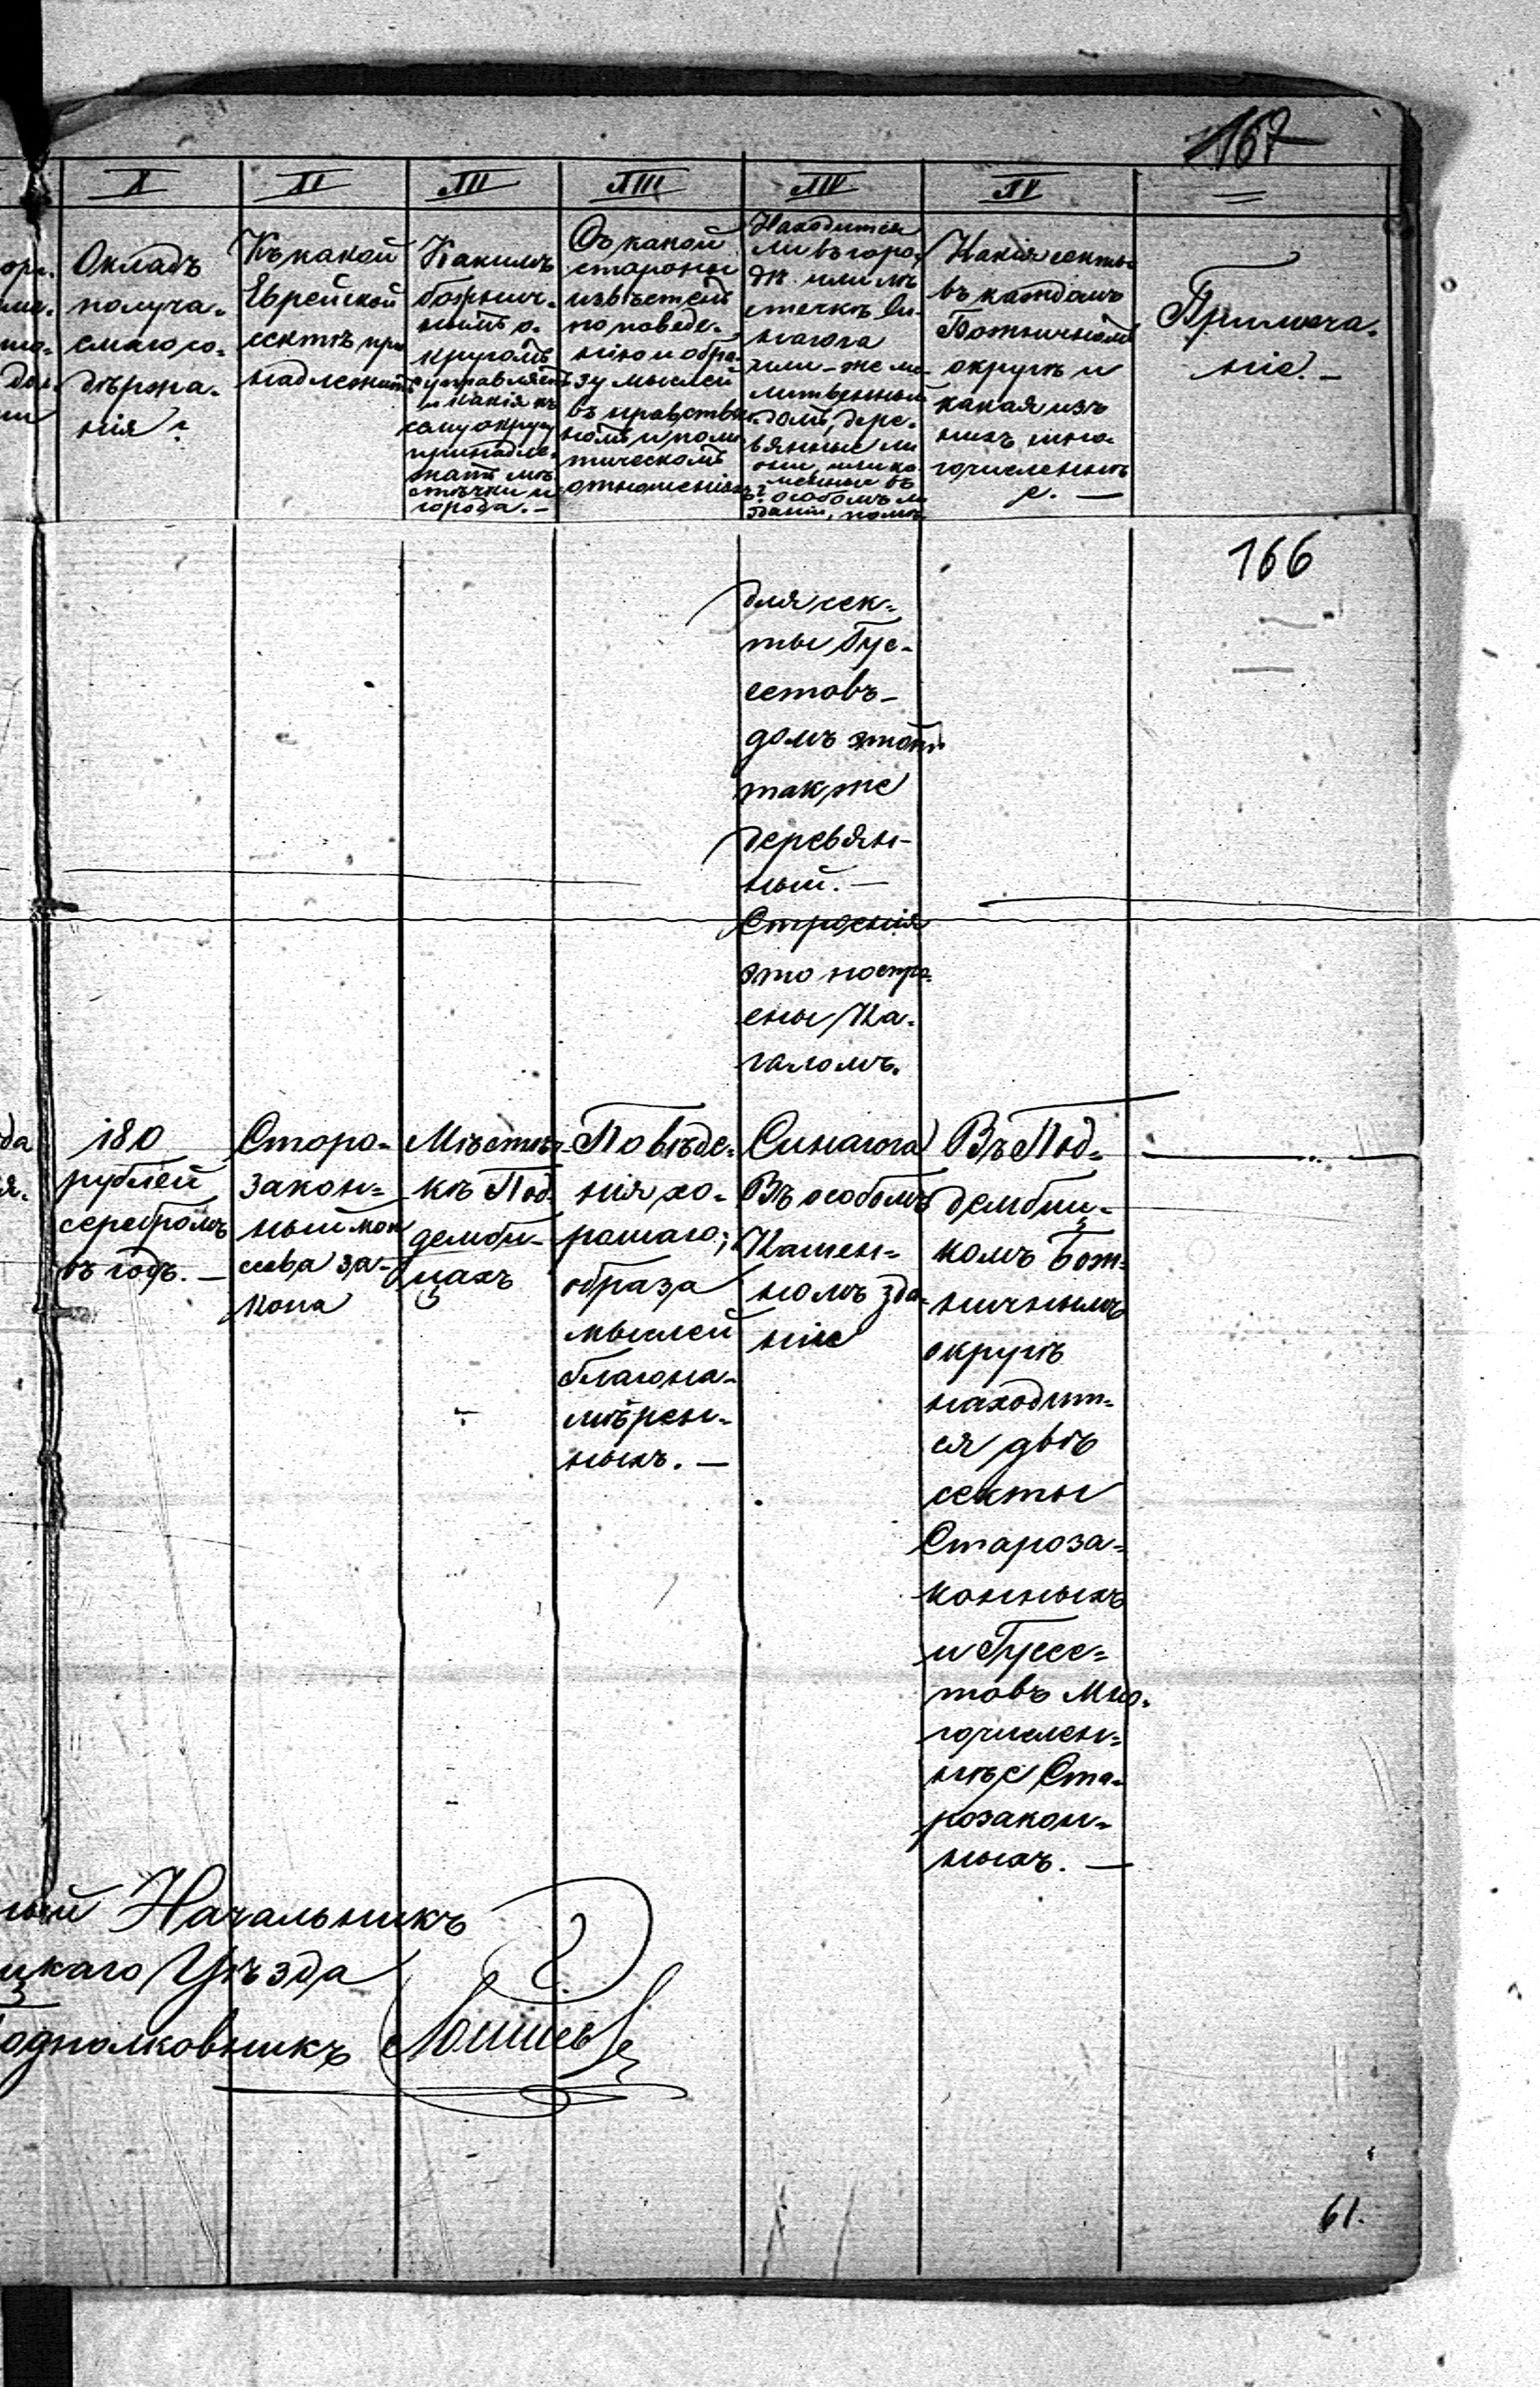 167
X
XI
XII
XIII
XIV
XV
Окладъ
получа-
емаго со-
дѣржа-
нія?
Къ какой
Еврейской
сектѣ при
надлежитъ
Какимъ
божнич-
нымъ о-
кругомъ
управляетъ
и какія къ
сему округу
принадле-
жатъ мѣ-
стѣчки и
города.-
Съ какой
стороны
извѣстенъ
по поведе-
нію и обра-
зу мыслей
въ нравствен-
номъ и поли
тическомъ
отношеніяхъ?
Находится
ли въ горо-
дѣ или мѣ
стечкѣ си-
нагога
или-же мо-
литвенный
домъ, дере-
вянные ли
они, или ка-
менные въ
особомъ ли
зданіи,
Какія секты
въ каждомъ
Божничномъ
округѣ и
какая изъ
нихъ мно-
гочисленнѣ
е. —
Примѣча-
ніе. —
166
для сек-
ты Гус-
сетовъ-
домъ этотъ
также
деревян-
ный. —
Строенія
это постро-
ены Ка-
галомъ.
180
рублей
серебромъ
въ годъ. —
Старо-
закон-
ный мои
сева за-
кона
Мѣстеч-
кѣ Под-
демби-
цахъ
По вѣде-
нія хо-
рошаго;
образа
мыслей
благона-
мѣрен-
ныхъ. —
Синагога
Въ особомъ
Камен-
номъ зда-
ніе
Въ Под-
дембиц-
комъ Бож-
ничнымъ
округѣ
находит-
ся двѣ
секты
Староза-
конныхъ
и Гуссе-
товъ Мно-
гочислен-
нѣе Ста-
розакон-
ныхъ. —
ный Начальникъ
цкаго Уѣзда
одполковникъ
61.